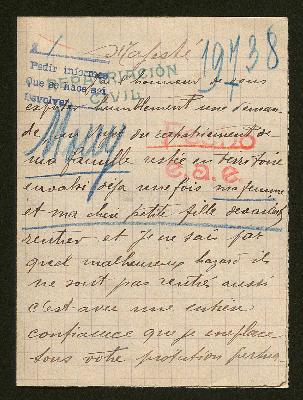 Majesté
19738
Pedir informes
Que se hace así
Devolver
REPATRIACIÓN
CIVIL
honneur de vous
humblement une deman-
de au sujet du rapatriement de
ma famille restée en
déjà une fois ma femme
et ma chère petite fille devaient
rentrer et Je ne sais par
quel malheureux hazard ils
ne sont pas rentrés aussi
c'est avec une entière
confiance que je me place
sous votre protection